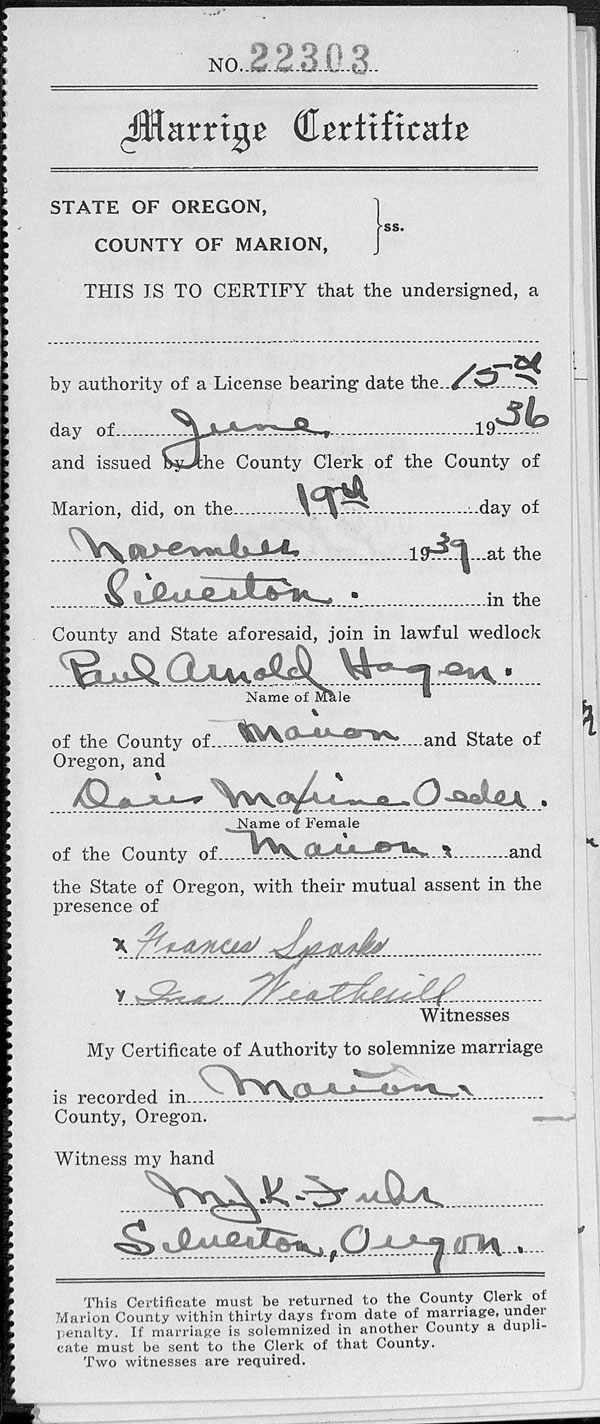 NO. 22303
Marrige Certificate
STATE OF OREGON,
COUNTY OF MARION,
ss.
THIS IS TO CERTIFY that the undersigned, a
by authority of a License bearing date the 15th
day of June, 1936
and issued by the County Clerk of the County of
Marion, did, on the 19th day of
November 1939 at the
Silverton. in the
County and State aforesaid, join in lawful wedlock
Paul Arnold Hagen.
Name of Male
of the County of Marion and State of
Oregon, and
Doris Maxine Oeder.
Name of Female
of the County of Marion. and
the State of Oregon, with their mutual assent in the
presence of
x Frances Sparks
x Ina Weatherill
Witnesses
My Certificate of Authority to solemnize marriage
is recorded in Marion.
County, Oregon.
Witness my hand
M.J.K. Fuhr
Silverton, Oregon.
This Certificate must be returned to the County Clerk of
Marion County within thirty days from date of marriage, under
penalty. If marriage is solemnized in another County a dupli-
cate must be sent to the Clerk of that County.
Two witnesses are required.